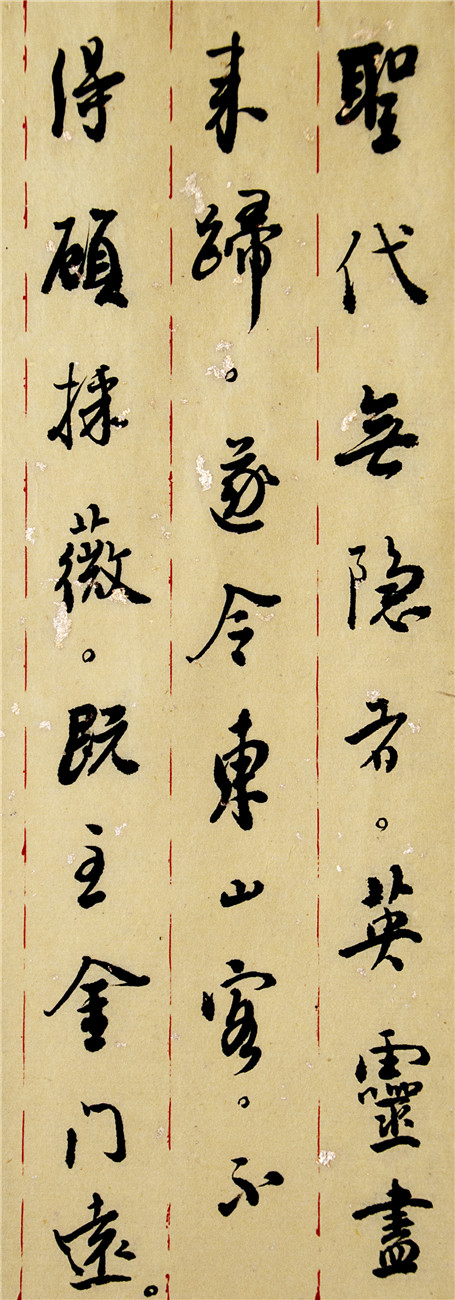 聖代無隐者。英靈盡
来歸。遂令東山客。不
得顧採薇。既主金门遠。